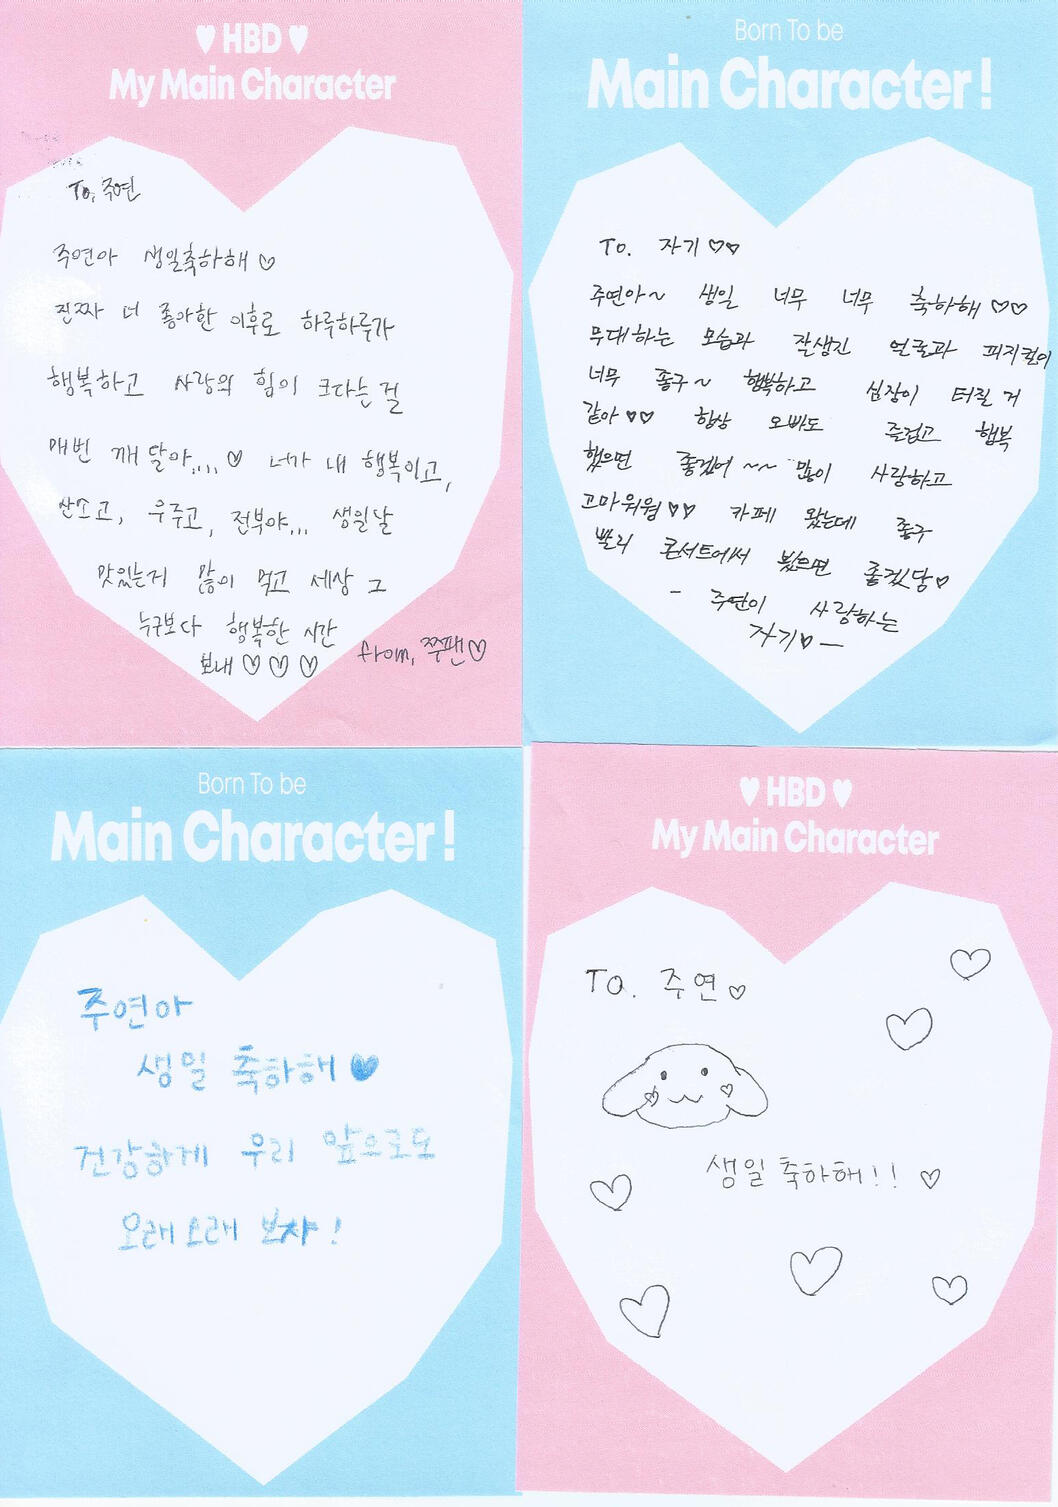 ♥ HBD ♥
My Main Character
To. 주연
주연아 생일축하해♡
진짜 너 좋아한 이후로 하루하루가
행복하고 사랑의 힘이 크다는 걸
매번 깨달아....♡ 너가 내 행복이고,
산소고, 우주고, 전부야... 생일날
맛있는거 많이 먹고 세상 그
누구보다 행복한 시간
보내♡♡♡
from. 쭈팬♡
Born To be
Main Character!
To. 자기♡♡
주연아~ 생일 너무 너무 축하해♡♡
무대하는 모습과 잘생긴 얼굴과 피지컬이
너무 좋구~ 행복하고 심장이 터질 거
같아♥♥ 항상 오빠도 즐겁고 행복
했으면 좋겠어~~ 많이 사랑하고
고마워웡♡♡ 카페 왔는데 좋구
빨리 콘서트에서 봤으면 좋겠당♡
- 주연이 사랑하는
자기♥ -
Born To be
Main Character!
주연아
생일 축하해♥
건강하게 우리 앞으로도
오래오래 보자!
♥ HBD ♥
My Main Character
To. 주연♡
생일 축하해!! ♡